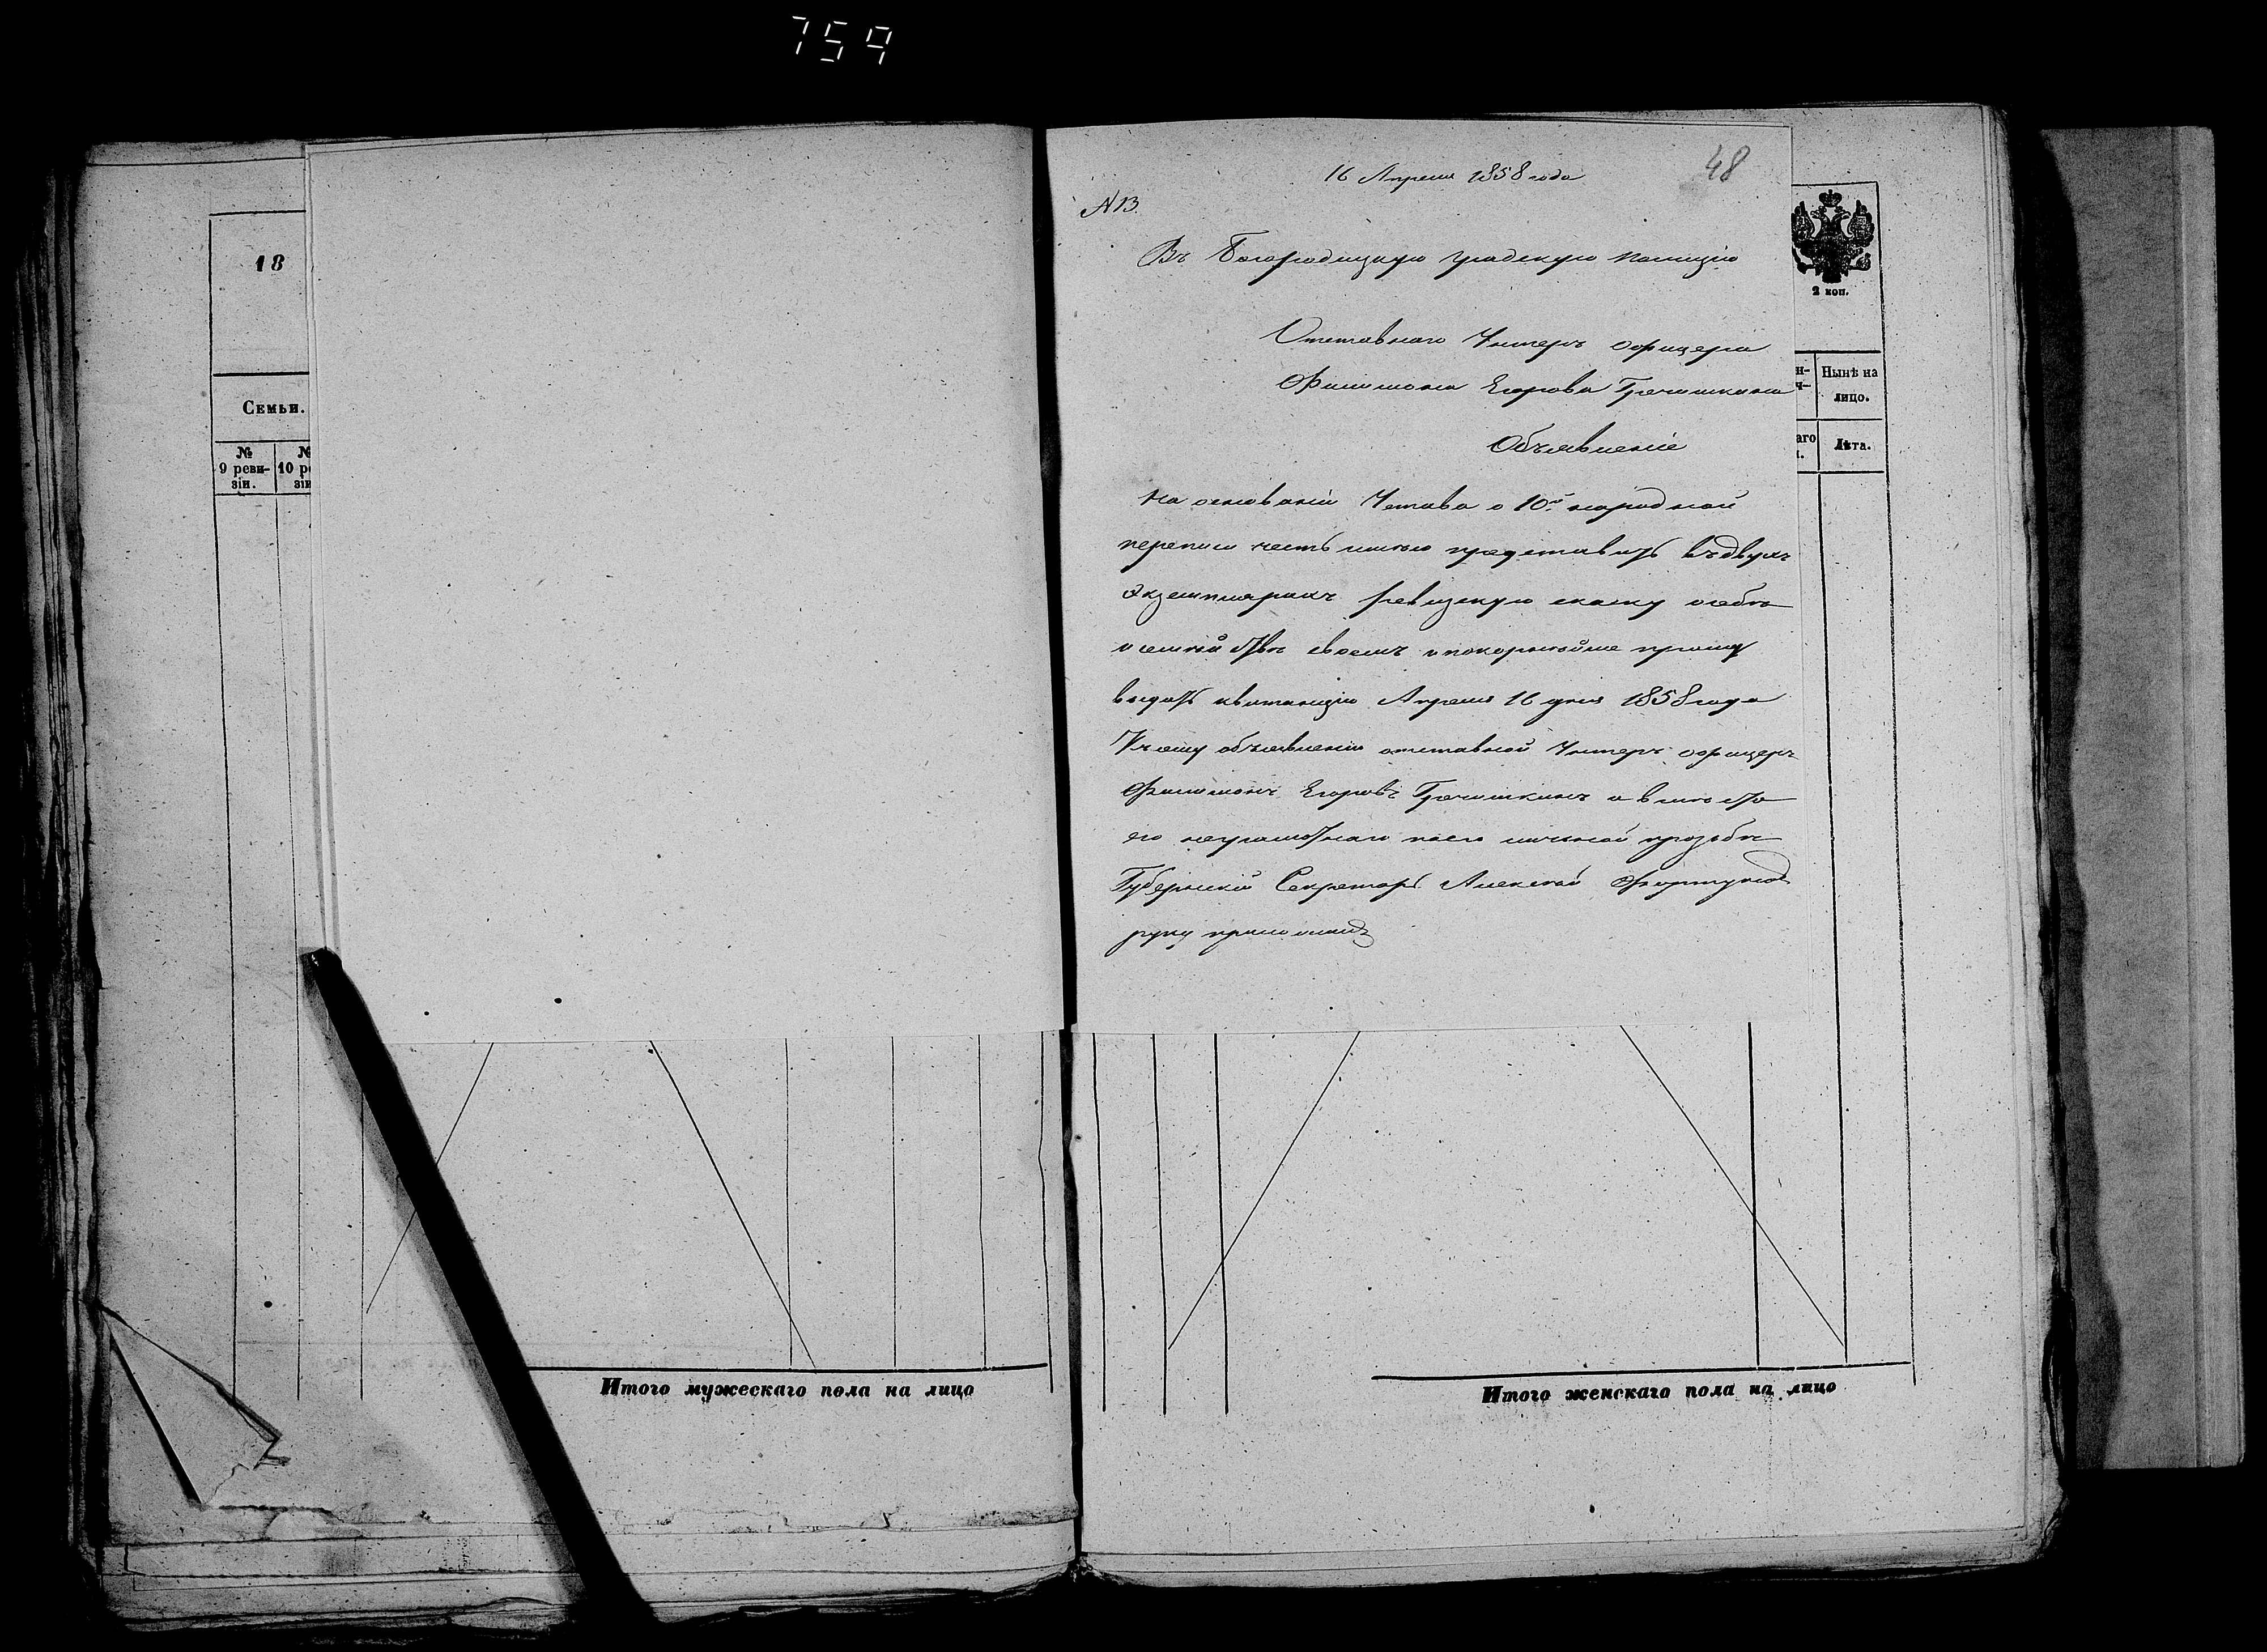 759
18
Семьи.
№ №
9 реви- 10 р
зіи. зі
Итого мужескаго пола на лицо
48
16 Апреля 1858 года
N 13.
Въ Богородицкую градскую полицію
Отставнаго Унтеръ офицера
Филимона Егорова Гречишкина
Объявленіе
На основаніи Устава о 10й народной
переписи честь имею представить въ двухъ
экземплярахъ ревизскую скаску о себе
и семействе своемъ и покорнейше прошу
выдать квитанцію Апреля 16 дня 1858 года
К сему объявленію отставной Унтеръ офицеръ
Филимонъ Егоровъ Гречишкинъ а вместо
его неграмотнаго по его личной прозьбе
Губернскій Секретарь Алексей
руку приложилъ
2 коп.
н- Нынѣ на
ч- лицо.
аго Лѣта.
Итого женскаго пола на лицо